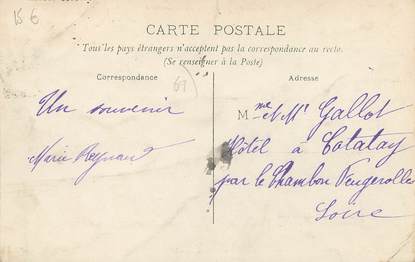 15 €
CARTE POSTALE
Tous les pays étrangers n'acceptent pas la correspondance au recto.
(Se renseigner à la Poste)
Correspondance
Adresse
69
Un souvenir
Marie Reynaud
Mme & Mr Gallot
Hôtel à Cotatay
par le Chambon Feugerolle
Loire